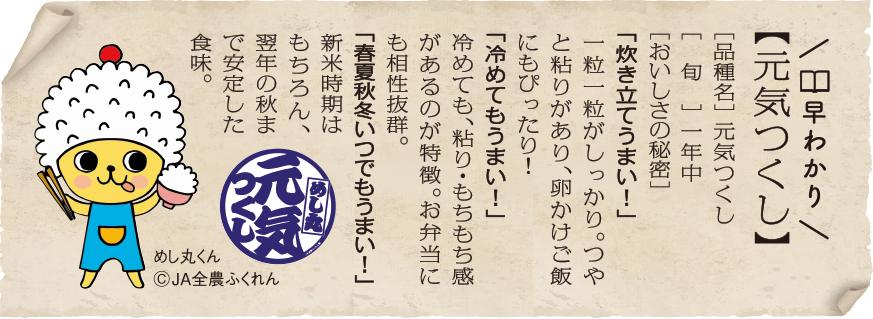 早わかり
【元気つくし】
［品種名］元気つくし
［ 旬 ］一年中
［おいしさの秘密］
「炊き立てうまい！」
一粒一粒がしっかり。つや
と粘りがあり、卵かけご飯
にもぴったり！
「冷めてもうまい！」
冷めても、粘り・もちもち感
があるのが特徴。お弁当に
も相性抜群。
「春夏秋冬いつでもうまい！」
新米時期は
もちろん、
翌年の秋ま
で安定した
食味。
めし丸
元気
つくし
めし丸くん
©JA全農ふくれん